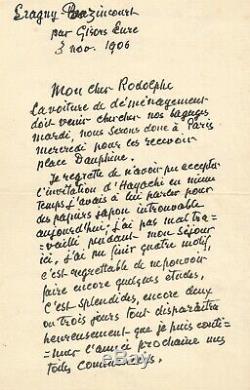 Eragny Bazincourt
par Gisors Eure
3 nov. 1906
Mon cher Rodolphe
La voiture de déménagement
doit venir chercher nos bagages
mardi, nous serons donc à Paris
mercredi pour les recevoir
place Dauphine.
Je regrette de n'avoir pu accepter
l'invitation d'Hayachi en même
temps j'avais à lui parler pour
des papiers japon introuvable
aujourd'hui, j'ai pas mal tra-
vaillé pendant mon séjour
ici, j'ai pu finir quatre motifs
c'est regrettable de ne pouvoir
faire encore quelques études,
C'est splendides, encore deux
ou trois jours tout disparaîtra
heureusement que je puis conti-
nuer l'année prochaine mes
toiles commencées.